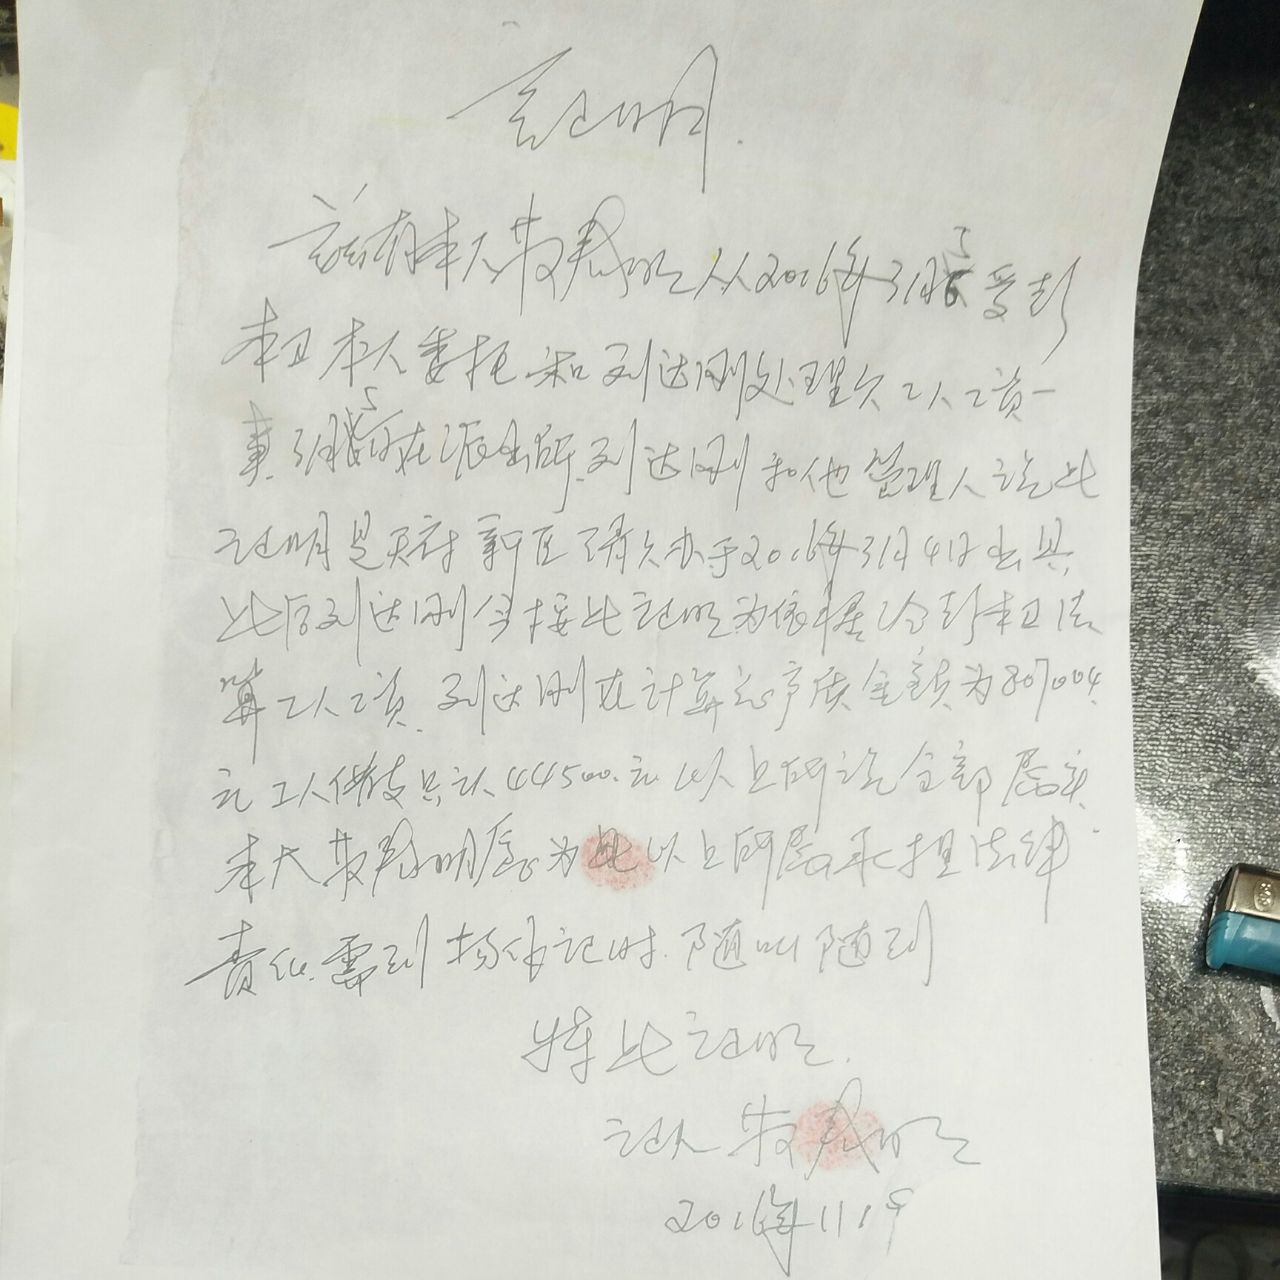 证明.
兹有本人黎君明从2016年3月5受彭
本卫本人委托和刘达刚处理欠工人工资一
事.3月5日在派出所.刘达刚和他管理人说此
证明是天府新区清欠办于2016年3月4日出具
此后刘达刚会按此证明为依据给彭本卫结
算工人工资.刘达刚在计算总产质金额为807004.
元工人借支只认44500.元以上所说全部属实.
本人黎君明愿为此以上所属承担法律
责任.需到场作记时.随叫随到
特此证明.
证人黎君明
2016年11.9